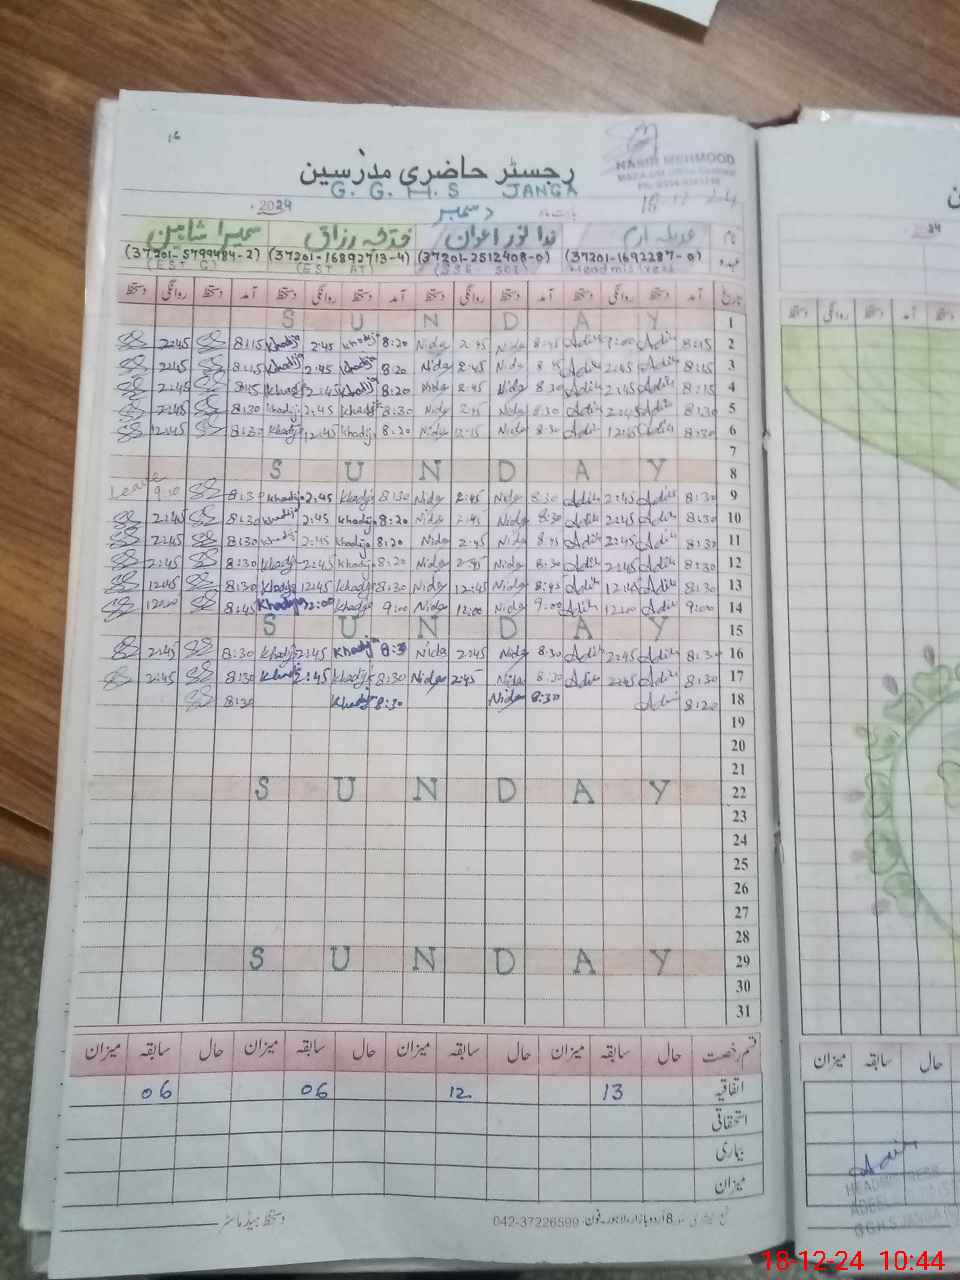 16
رجسٹر حاضری مدرسین
NASIR MEHMOOD
G. G. H. S JANGA
18-12-24
2024
دسمبر
نام عدیلہ ارم ندا النور اعوان خدیجہ رزاق سمیرا شاہین
عہدہ (37201-1692287-0) (37201-2512408-0) (37201-16892713-4) (37201-5799484-2)
Headmistress (SSE SCI) (EST AT) (EST G)
تاریخ آمد دستخط روانگی دستخط آمد دستخط روانگی دستخط آمد دستخط روانگی دستخط آمد دستخط روانگی دستخط
S U N D A Y 1
2:45 8:15 Khadija 2:45 Khadija 8:20 Nida 2:45 Nida 8:45 Adila Adila 8:15 2
2:45 8:15 Khadija 2:45 Khadija 8:20 Nida 2:45 Nida Adila 2:45 Adila 8:15 3
2:45 8:15 Khadija 2:45 Khadija 8:20 Nida 2:45 Nida 8:30 Adila 2:45 Adila 8:15 4
2:45 8:30 Khadija 2:45 Khadija 8:30 Nida 2:45 Nida 8:30 Adila 2:45 Adila 8:30 5
12:45 8:30 Khadija 12:45 Khadija 8:20 Nida Nida 8:30 Adila 12:45 Adila 8:30 6
7
S U N D A Y 8
Leave 9:10 8:30 Khadija 2:45 Khadija 8:30 Nida 2:45 Nida 8:30 Adila 2:45 Adila 8:30 9
2:45 8:30 Khadija 2:45 Khadija 8:20 Nida 2:45 Nida 8:30 Adila 2:45 Adila 8:30 10
2:45 8:30 Khadija 2:45 Khadija 8:20 Nida 2:45 Nida Adila 2:45 Adila 8:30 11
2:45 8:30 Khadija 2:45 Khadija 8:20 Nida 2:45 Nida 8:30 Adila 2:45 Adila 8:30 12
12:45 8:30 Khadija 12:45 Khadija 8:30 Nida 12:45 Nida 8:45 Adila 12:45 Adila 8:30 13
12:00 8:45 Khadija 12:00 Khadija 9:00 Nida 12:00 Nida 9:00 Adila 12:00 Adila 9:00 14
S U N D A Y 15
2:45 8:30 Khadija 2:45 Khadija 8:30 Nida 2:45 Nida 8:30 Adila 2:45 Adila 8:30 16
2:45 8:30 Khadija 2:45 Khadija 8:30 Nida 2:45 Nida 8:30 Adila 2:45 Adila 8:30 17
8:30 Khadija 8:30 Nida 8:30 Adila 8:20 18
19
20
21
S U N D A Y 22
23
24
25
26
27
28
S U N D A Y 29
30
31
قسم رخصت حال سابقہ میزان حال سابقہ میزان حال سابقہ میزان حال سابقہ میزان
اتفاقیہ 13 12 06 06
استحقاقی
بیماری
میزان
دستخط ہیڈ ماسٹر
اردو بازار، لاہور، فون: 042-37226599
24
دستخط روانگی دستخط آمد دستخط
حال سابقہ میزان
Adila
HEADMISTRESS
G.G.H.S JANGA
18-12-24 10:44